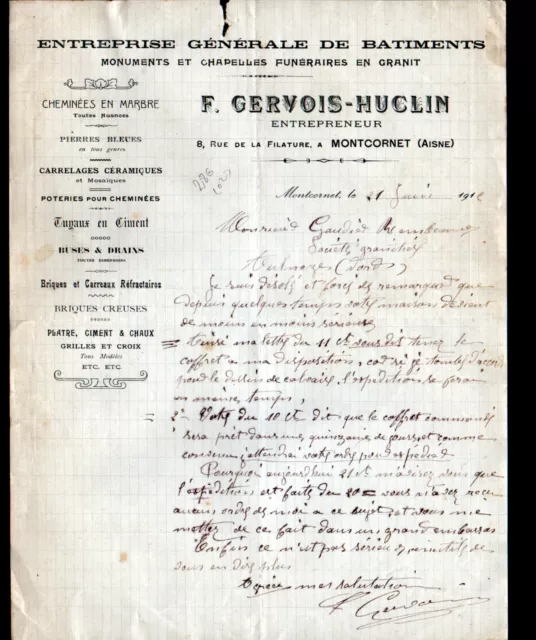 ENTREPRISE GÉNÉRALE DE BATIMENTS
MONUMENTS ET CHAPELLES FUNÉRAIRES EN GRANIT
F. GERVOIS-HUCLIN
ENTREPRENEUR
8, RUE DE LA FILATURE, A MONTCORNET (AISNE)
CHEMINÉES EN MARBRE
Toutes Nuances
PIERRES BLEUES
en tous genres
CARRELAGES CÉRAMIQUES
et Mosaïques
POTERIES POUR CHEMINÉES
Tuyaux en Ciment
BUSES & DRAINS
TOUTES DIMENSIONS
Briques et Carreaux Réfractaires
BRIQUES CREUSES
PLATRE, CIMENT & CHAUX
GRILLES ET CROIX
Tous Modèles
ETC. ETC.
Montcornet, le 21 191
Monsieur
Société
(Nord)
Je suis désolé et forcé de remarquer que
depuis quelques temps votre maison devient
de moins en moins sérieuse
ma lettre du 11 ct vous dit tenez le
coffret a ma disposition,
pour le dessin de calvaire l'expédition se fera
en même temps,
2° Votre du 10 ct dit que le coffret commandé
sera prêt dans une quinzaine de jours et comme
convenu j'attendrai votre ordre pour expédier
Pourquoi aujourd'hui 21 ct vous que
l'expédition est faite du 20 vous n'avez reçu
aucun ordre de moi a ce sujet et vous me
mettez de ce fait dans un grand embarras
Enfin ce n'est pas sérieux de
vous en dire plus
mes salutations